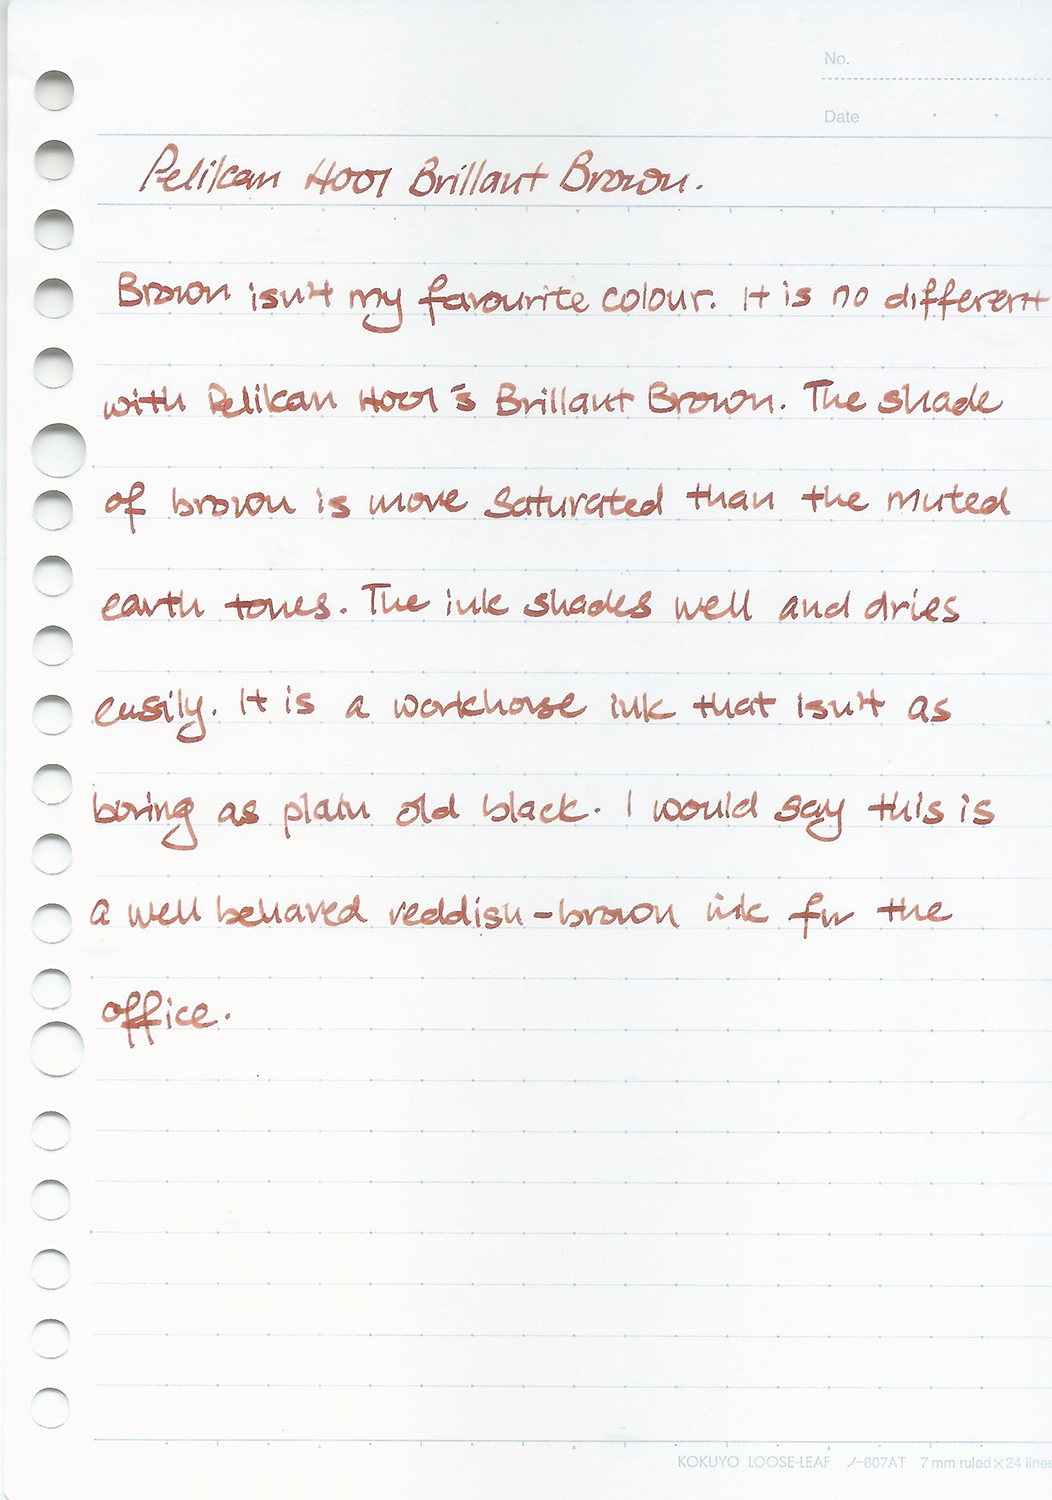 No.
Date
Pelikan 4001 Brillant Brown.
Brown isn't my favourite colour. It is no different
with Pelikan 4001's Brillant Brown. The shade
of brown is more saturated than the muted
earth tones. The ink shades well and dries
easily. It is a workhorse ink that isn't as
boring as plain old black. I would say this is
a well behaved reddish-brown ink for the
office.
KOKUYO LOOSE-LEAF ノ-807AT 7 mm ruled×24 lines